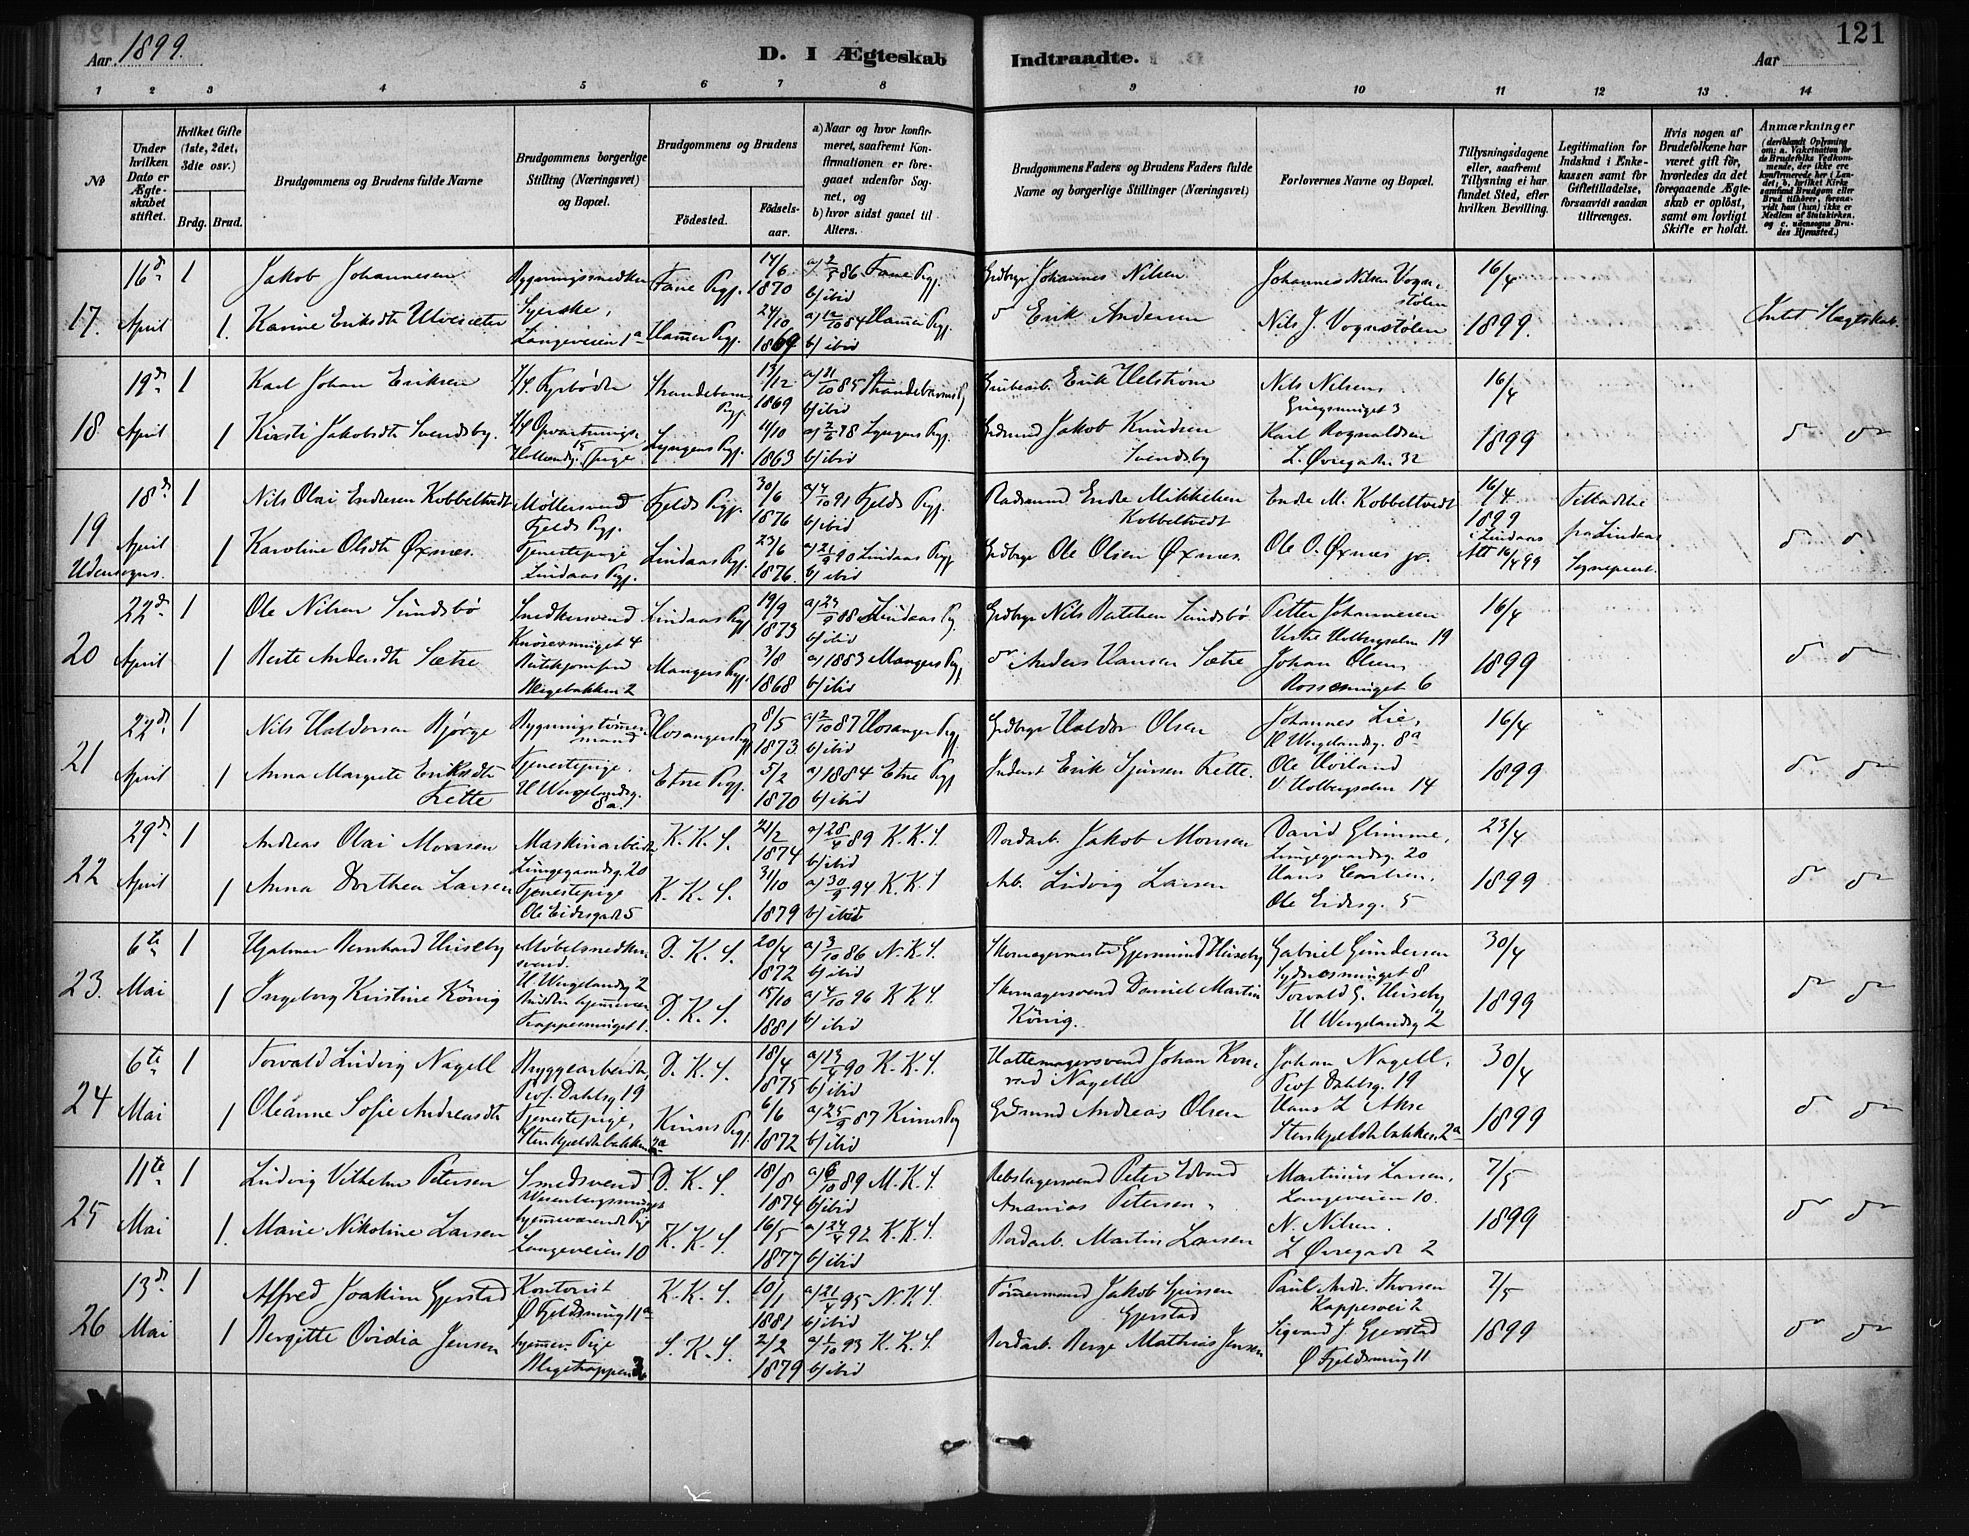 Aar 1899.
D. I Ægteskab Indtraadte.
Aar
121
1 2 3 4 5 6 7 8 9 10 11 12 13 14
No
Under hvilken Dato er Ægteskabet stiftet.
Hvilket Gifte (1ste, 2det, 3die osv.)
Brdg. Brud.
Brudgommens og Brudens fulde Navne
Brudgommens borgerlige Stilling (Næringsvei) og Bopæl.
Brudgommens og Brudens
Fødested.
Fødselsaar.
a) Naar og hvor konfirmeret, saafremt Konfirmationen er foregaaet udenfor Sognet, og
b) hvor sidst gaaet til Alters.
Brudgommens Faders og Brudens Faders fulde Navne og borgerlige Stillinger (Næringsvei)
Forlovernes Navne og Bopæl.
Tillysningsdagene eller, saafremt Tillysning ei har fundet Sted, efter hvilken Bevilling.
Legitimation for Indskud i Enkekassen samt for Giftetilladelse, forsaavidt saadan tiltrænges.
Hvis nogen af Brudefolkene har været gift før, hvorledes da det foregaaende Ægteskab er opløst, samt om lovligt Skifte er holdt.
Anmærkninger (deriblandt Oplysning om: a. Vakcination for de Brudefolks Vedkommende, der ikke ere konfirmerede her i Landet; b. hvilket Kirkesamfund Brudgom eller Brud tilhører, forsaavidt han (hun) ikke er Medlem af Statskirken, og c. udensogns Brudes Hjemsted.)
17. 16de April 1 Jakob Johannesen Bygningssnedker Fane Pgj. 14/6 1870 a) 2/5 86 Fane Pgj. b) ibid Grdbrgr Johannes Nilsen Johannes Nilsen Vognstølen 16/4
1. Karine Eriksdtr Ulvesæter Syerske, Langeveien 1a Hamer Pgj. 24/10 1869 a) 12/10 84 Hamer Pgj. b) ibid do Erik Andersen Nils J. Vognstølen 1899. Intet Slægtskab.
18 19de April 1 Karl Johan Eriksen Fyrbøder Strandebarm Pgj. 13/12 1869 a) 11/10 85 Strandebarms Pgj b) ibid Grubearb. Erik Helstrøm Nils Nilsen, Griegsmuget 3 16/4
1 Kirsti Jakobsdtr Svendsby. Opvartningspige Hollændg. 15 Lyngens Pgj. 4/10 1863 a) 2/6 78 Lyngens Pgj. b) ibid Grdmnd Jakob Knudsen Svendsby Karl Rognaldsen L. Øvregade. 32 1899 do do
19 Udensogns. 18de April 1 Nils Olai Endresen Kobbeltvedt Møllersvend Fjelds Pgj. Fjelds Pgj. 30/6 1876 a) 4/10 91 Fjelds Pgj. b) ibid Endre Mikkelsen Kobbeltvedt Endre M. Kobbeltvedt 16/4 1899 i Lindaas
1 Karoline Olsdtr Øxnes. Tjenestepige Lindaas Pgj. Lindaas Pgj. 23/6 1876. a) 21/9 90 Lindaas Pgj. b) ibid Grdbrgr Ole Olsen Øxnes. Ole O. Øxnes jr. Att 16/4 99 Tilladelse fra Lindaas Sogneprest. do do
20 22de April 1 Ole Nilsen Sundsbø Snedkersvend Knøsesmuget 4 Lindaas Pgj 19/9 1873 88 Lindaas Pgj. b) ibid Grdbrgr Nils Sundsbø Petter Johannesen Vestre Holbergsalm 19 16/4
1 Berte Andersdtr Sætre Butikjomfru 2 Mangers Pgj. 3/8 1868 a) 1883 Mangers Pgj. b) ibid do Anders Hansen Sætre Johan Olsen, Rossesmuget 6 1899 do do
21 22de April 1 Nils Haldorsen Bjørge Bygningstømmermand Hosangers Pgj 8/5 1873 a) 2/10 87 Hosanger Pgj. b) ibid Grdbrgr Haldor Olsen Johannes Lie, H Wergelandsg. 8a 16/4
1 Anna Margrete Eriksdtr Tette Tjenestepige. H Wergelandsg. 8a. Etne Pgj. 5/2 1870 a) 1884 Etne Pgj b) ibid Inderst Erik Sjursen Tette. Ole Høiland V Holbergsalm 14 1899 do do
22 29de April 1 Andreas Olai Monsen Maskinarbeider Lungegaardsg. 20 K. K. S. 21/2 1874 a) 28/4 89 K. K. S. b) ibid Bordarb. Jakob Monsen David Glimme, Lungegaardsg. 20 23/4
1 Anna Dorthea Larsen Tjenestepige Ole Eidesgade 5 K. K. S. 31/10 1879 a) 30/9 94 K. K. S b) ibid Arb. Ludvig Larsen Hans Ole Eidesg. 5 1899 do do
23. 6te Mai 1 Hjalmar Bernhard Huseby Møbelsnedkersvend. H. Wergelandsg 2 D. K. S. 20/4 1872 a) 3/10 86 N. K. S. b) ibid Skomagermester Gjermund Huseby Gabriel Gundersen Sydnessmuget 8 30/4
1 Ingeborg Kristine König Trappesmuget 1. D. K. S. 15/10 1881 a) 4/10 96 K K S. b) ibid Skomagersvend Daniel Martin König. Torvald G. Huseby H Wergelandsg 2 1899 do do
24 6te Mai 1 Torvald Ludvig Nagell Bryggearbeider, Prof. Dahlsg 19 D. K. S. 18/4 1875 a) 13/4 90 K. K. S. b) ibid Hattemagersvend Johan Konrad Nagell Johan Nagell, Prof Dahlsg. 19 30/4
1 Oleanne Sofie Andreasdtr Tjenestepige, Stenkjelderbakken 2a Kinns Pgj. 6/6 1872 a) 25/9 87 Kinns Pgj b) ibid Grdmnd Andreas Olsen Hans L Akse Stenkjelderbakken 2a 1899 do do
25 11te Mai 1 Ludvig Vilhelm Petersen Smedsvend D. K. S. 18/8 1874 a) 6/10 89 M. K. S. b) ibid Rebslagersvend Peter Edvard Ananias Petersen, Martinius Larsen, Langeveien 10. 7/5
1. Marie Nikoline Larsen hjemmeværende Pige Langeveien 10 K. K. S. 16/5 1877 a) 24/4 92 K. K. S. b) ibid Bordarb. Martin Larsen N. Nilsen. L Øvregade 2 1899 do do
26 13de Mai 1 Alfred Joakim Gjerstad Kontorist Ø Fjeldsmug 11a K. K. S. 10/1 1881 a) 21/4 95 N. K. S. b) ibid Tømmermand Jakob Gjerstad Paul Andr. Thorsen Kappesvei 2 7/5
1 Bergitte Ovidia Jensen hjemmev. Pige S. K. S. 2/2 1879 a) 1/10 93 K. K. S. b) ibid Bordarb. Berge Mathias Jensen Sigvard J. Gjerstad Ø Fjeldsmug 11 1899 do do